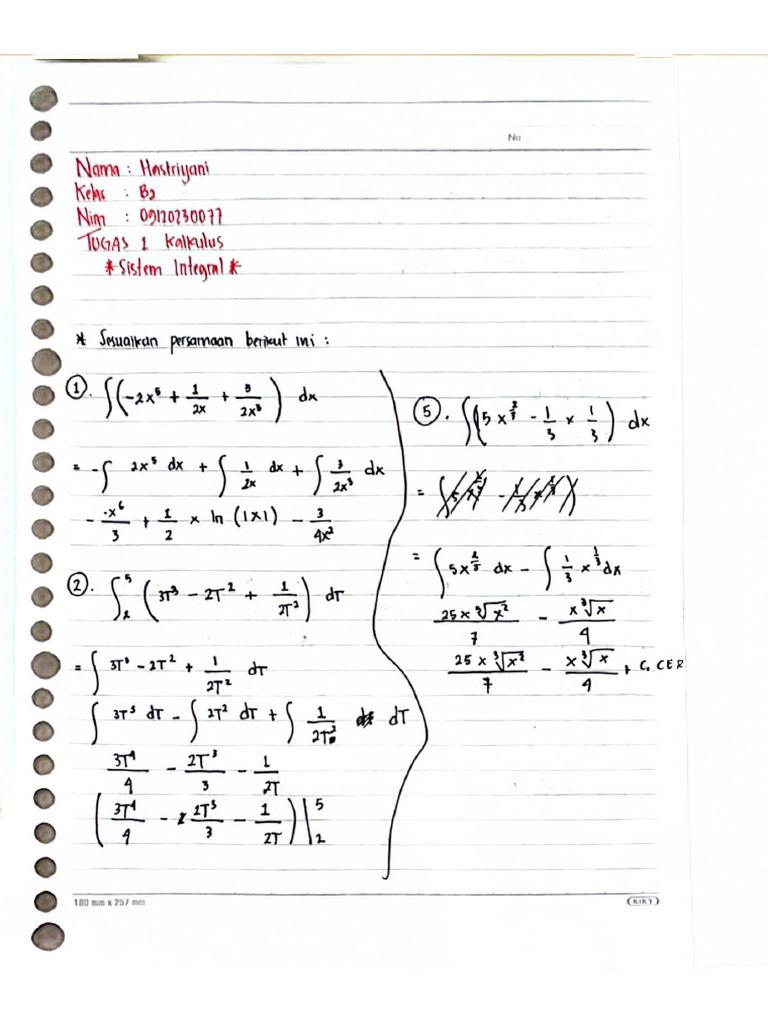 No
Nama : Hastriyani
Kelas : B2
Nim : 09120230077
TUGAS 1 Kalkulus
*Sistem Integral*
* Sesuaikan persamaan berikut ini :
①. ∫(-2x⁵ + 1/2x + 3/2x³) dx
= -∫ 2x⁵ dx + ∫ 1/2x dx + ∫ 3/2x³ dx
- x⁶/3 + 1/2 x ln (1x1) - 3/4x²
②. ∫₂⁵ (3T³ - 2T² + 1/2T²) dT
= ∫ 3T³ - 2T² + 1/2T² dT
∫ 3T³ dT - ∫ 2T² dT + ∫ 1/2T² dT
3T⁴/4 - 2T³/3 - 1/2T
(3T⁴/4 - 2T³/3 - 1/2T)|₂⁵
⑤. ∫(5x - 1/3 x 1/3) dx
=
= ∫5x dx - ∫ 1/3 x^1/3 dx
25x ∛x²/7 - x∛x/4
25x ∛x²/7 - x∛x/4 + C, CER
180 mm x 257 mm
KIKY